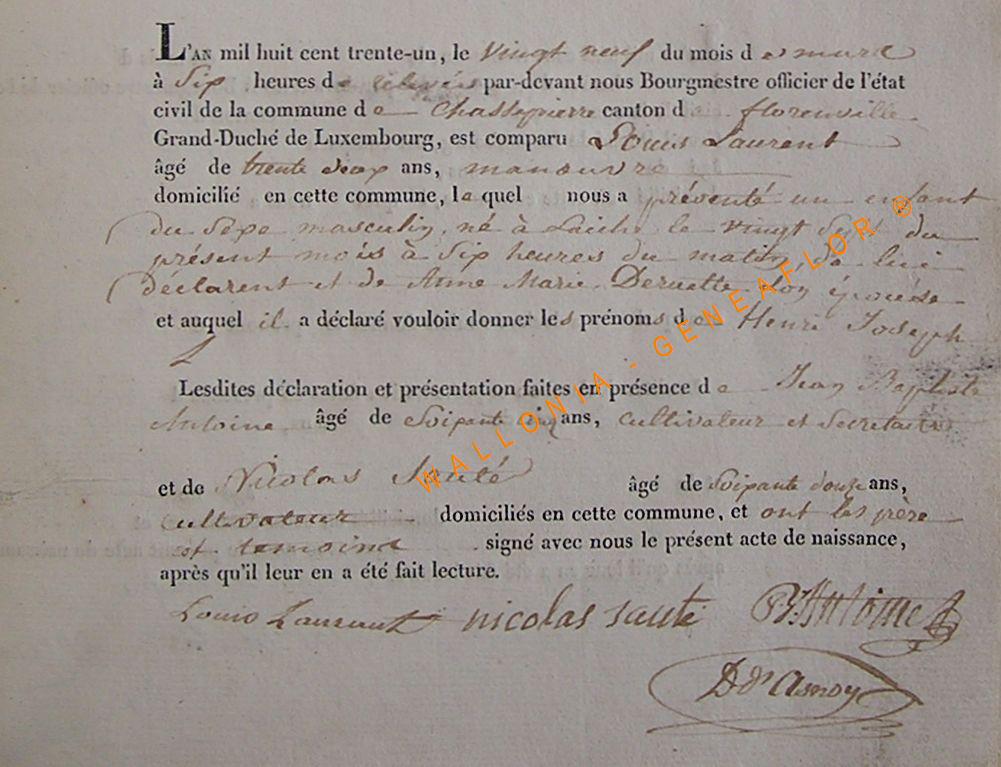 L'AN mil huit cent trente-un, le vingt neuf du mois de mars
à Six heures de relevée par-devant nous Bourgmestre officier de l'état
civil de la commune de Chassepierre canton de florenville
Grand-Duché de Luxembourg, est comparu Louis Laurent
âgé de trente deux ans, manouvre
domicilié en cette commune, lequel nous a présenté un enfant
du Sexe masculin, né à Laiche le vingt Sept du
présent mois à Six heures du matin, de lui
déclarent et de Anne Marie Deruette Son épouse
et auquel il a déclaré vouloir donner les prénoms de Henri Joseph
Lesdites déclaration et présentation faites en présence de Jean Baptiste
Antoine âgé de Soixante cinq ans, cultivateur et Secretaire
et de Nicolas Sauté âgé de Soixante douze ans,
cultivateur domiciliés en cette commune, et ont les père
et temoins signé avec nous le présent acte de naissance,
après qu'il leur en a été fait lecture.
Louis Laurent nicolas sauté Antoine
D d'Asnoy
WALLONIA - GENEAFLOR ®